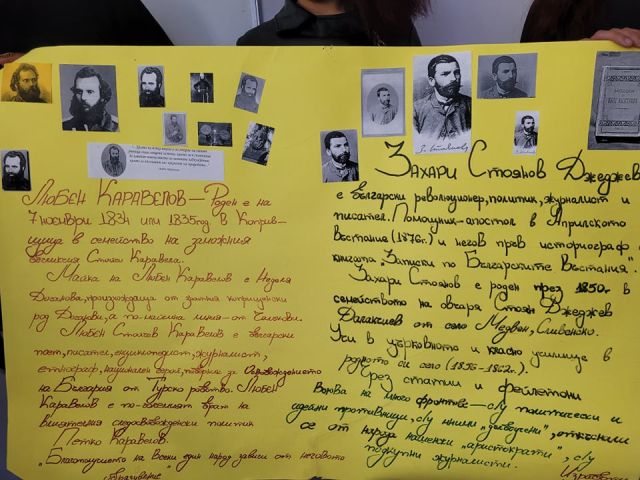 Любен Каравелов – Роден е на
7 ноември 1834 или 1835год в Коприв-
щица в семейство на заможния
Стойчо Каравела.
Майка на Любен Каравелов е Неделя
Доганова, произхождаща от знатния копривщенски
род Догови, а по
Любен Стойчев Каравелов е български
поет, писател, енциклопедист, журналист,
етнограф, национален герой, за Освобождението
на България от Турско робство. Любен
Каравелов е по-големият брат на
влиятелния следосвобожденски политик
Петко Каравелов.
"Благополучието на всеки един народ зависи от неговото
Захари Стоянов Джеджев
е български революционер, политик, журналист и
писател. Помощник-апостол в Априлското
въстание (1876г.) и негов пръв историограф с
книгата "Записки по Българските въстания".
Захари Стоянов е роден през 1850г. в
семейството на овчаря Стоян Джеджев
Далакчиев от село Медвен, Сливенско.
Учи в църковното и класно училище в
родното си село (1856-1862г.).
Чрез статии и фейлетони
воюва на много фронтове – с/у политически и
идейни противници, с/у мними откъснали
се от народа нашенски "аристократи", с/у
подкупни журналисти.